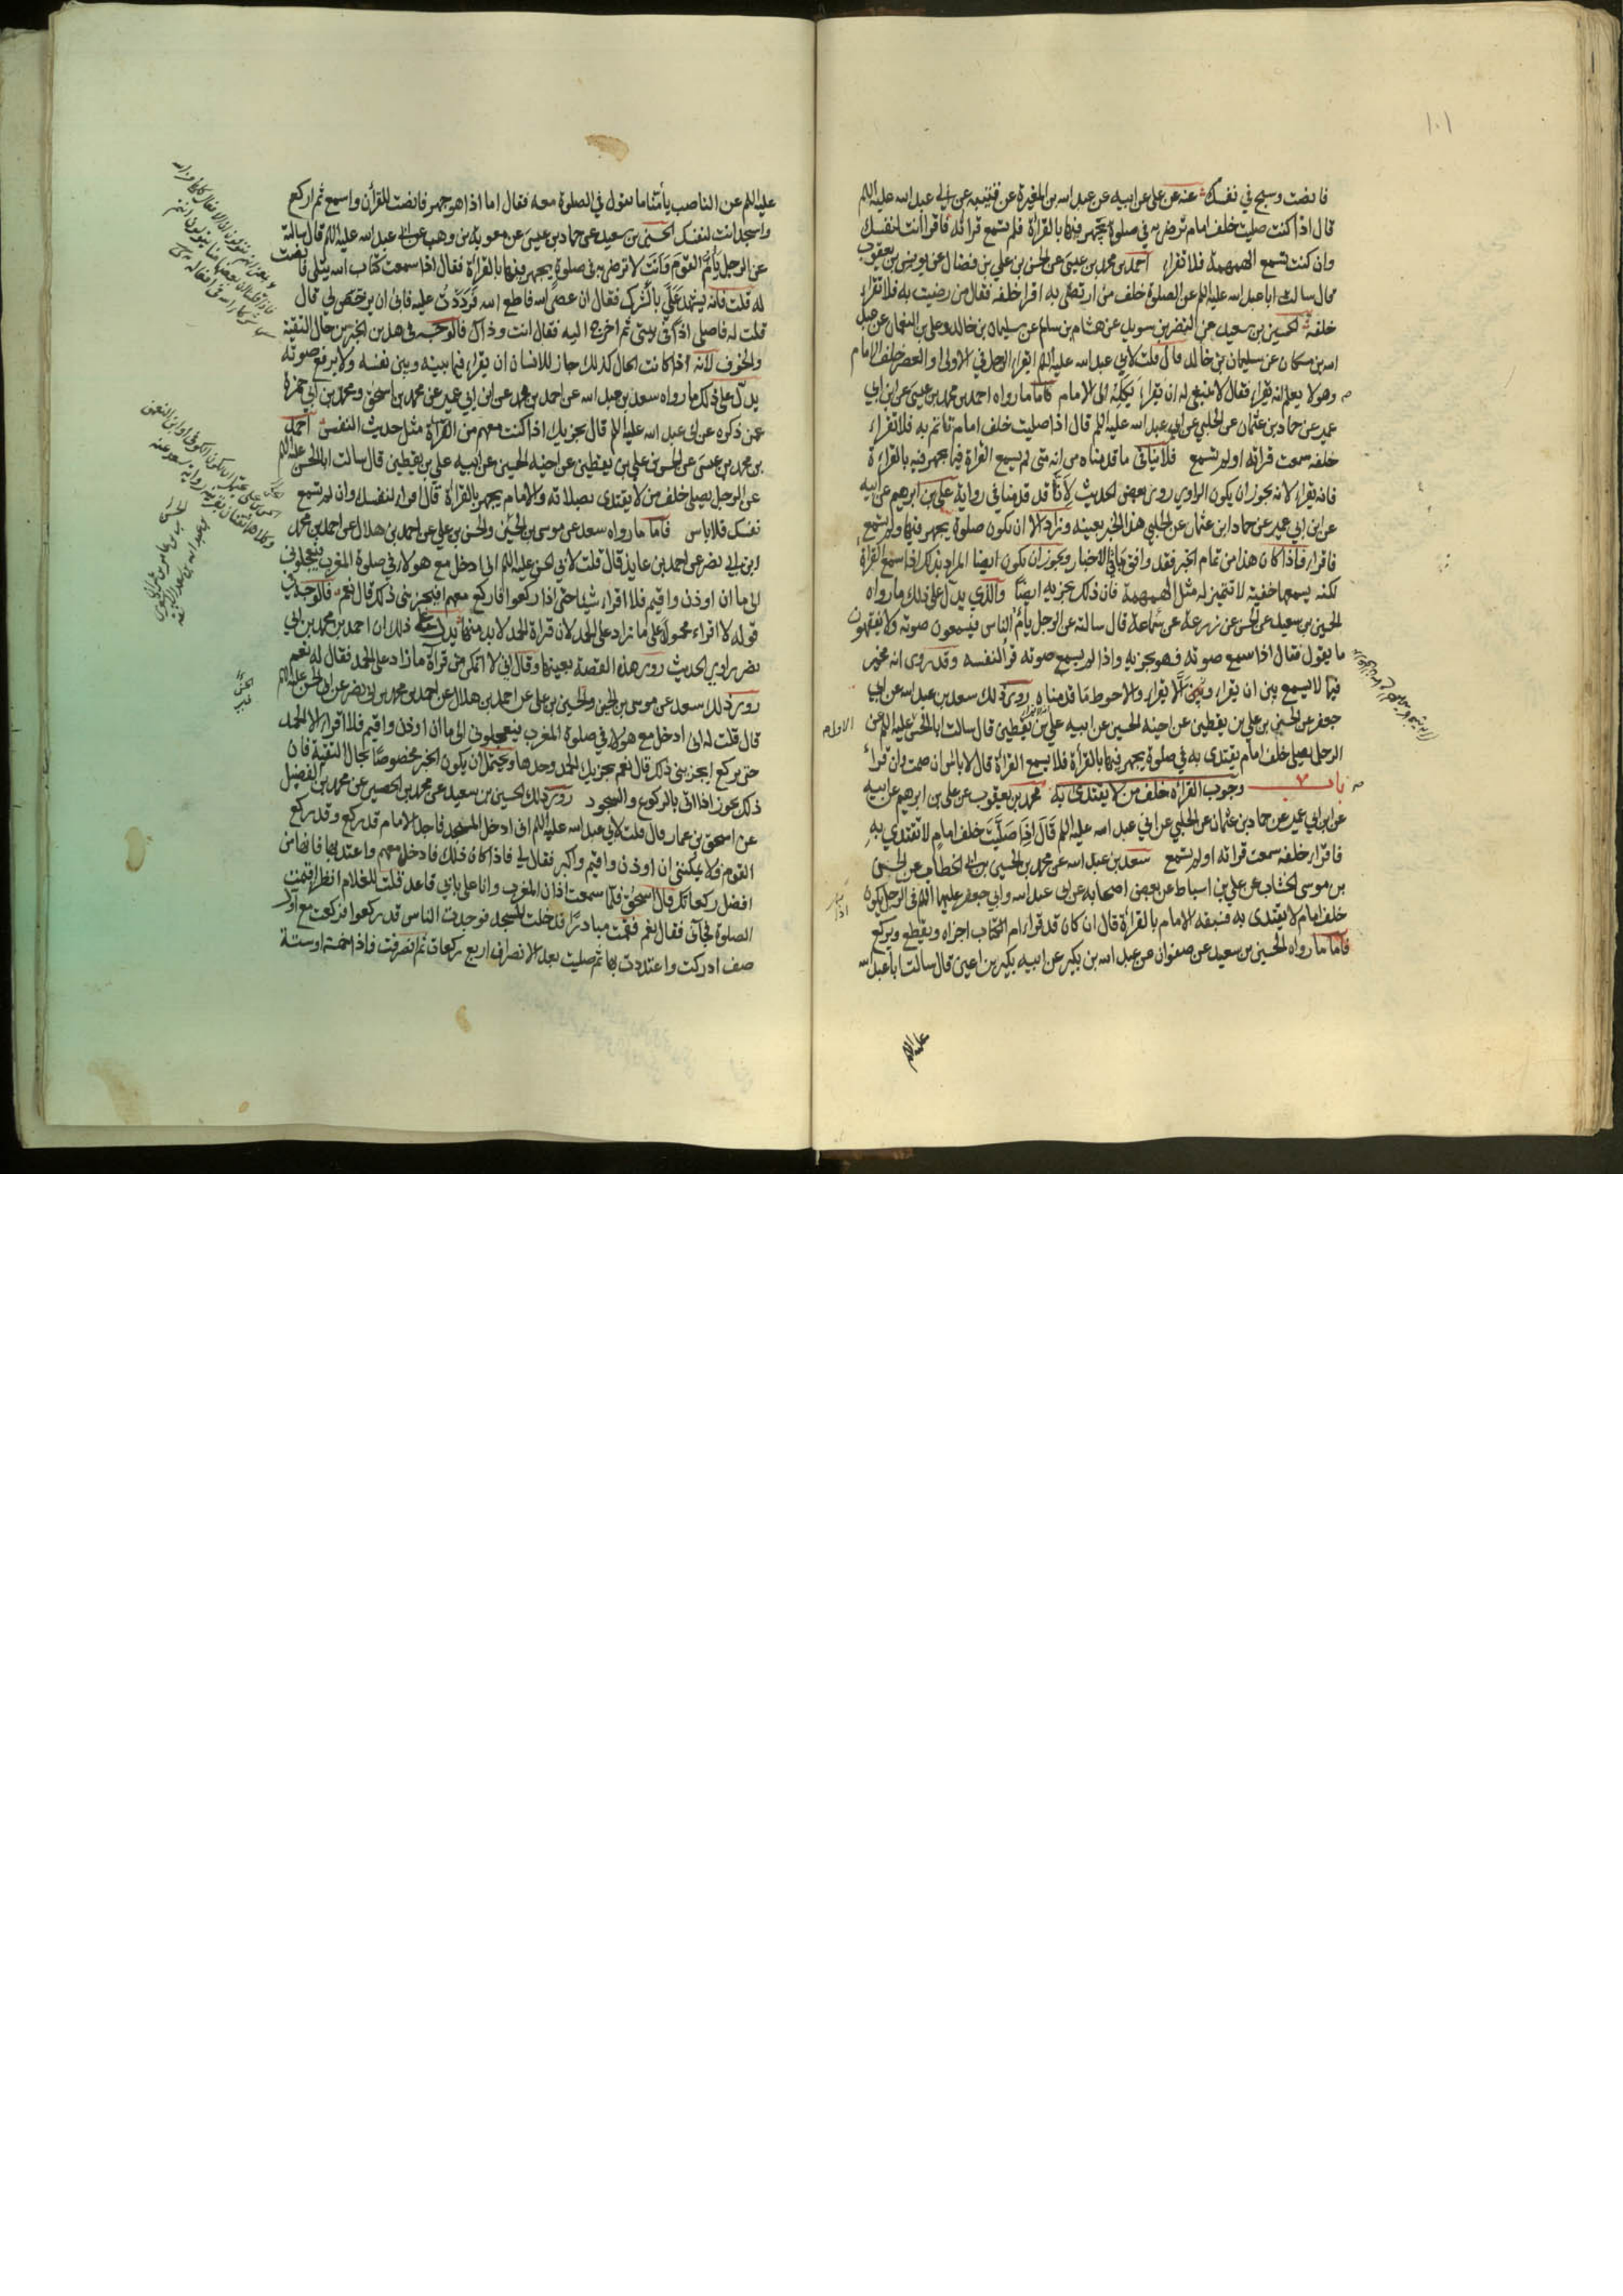 ١٠١
فانصت وسبح في نفسك عنه عن علي عن ابيه عن عبد الله بن المغيرة عن قتيبه عن ابي عبد الله عليه السلم
قال اذا كنت صليت خلف امام ترضى به في صلوة يجهر فيها بالقراة فلم تسمع قرائه فاقرا انت لنفسك
وان كنت تسمع الهمهمة فلا تقراء احمد بن محمد بن عيسى عن الحسن بن علي بن فضال عن يونس بن يعقوب
قال سالت ابا عبد الله عليه السلم عن الصلوة خلف من ارتضى به اقرا خلفه فقال من رضيت به فلا تقراء
خلفه الحسين بن سعيد عن النضر بن سويد عن هشام بن سالم عن سليمان بن خالد وعلي بن النعمان عن عبد
الله بن مسكان عن سليمان بن خالد قال قلت لابي عبد الله عليه السلم ايقراء الرجل في الاولى والعصر خلف الامام
وهو لا يعلم انه يقراء فقال لا ينبغي له ان يقراء يكله الى الامام فاما ما رواه احمد بن محمد بن عيسى عن ابن ابي
عمير عن حماد بن عثمان عن الحلبي عن ابي عبد الله عليه السلم قال اذا صليت خلف امام تاتم به فلا تقراء
خلفه سمعت قراته او لم تسمع فلا ينافي ما قدمناه من انه متى لم يسمع القراة فيما يجهر فيه بالقراءة
فانه يقراء لانه يجوز ان يكون الراوي روى بعض الحديث لانا قد قدمنا في رواية علي بن ابرهيم عن ابيه
عن ابن ابي عمير عن حماد ابن عثمان عن الحلبي هذا الخبر بعينه وزاد الا ان تكون صلوة يجهر فيها ولم تسمع
فاقراء فاذا كان هذا من تمام الخبر فقد وافق باقي الاخبار ويجوز ان يكون ايضا المراد بذلك اذا سمع القراة
لكنه يسمعها خفية لا تتميز له مثل الهمهمة فان ذلك يجزيه ايضا والذي يدل على ذلك ما رواه
الحسين بن سعيد عن الحسن عن زرعة عن سماعة قال سالته عن الرجل يام الناس فيسمعون صوته ولا يفقهون
ما يقول فقال اذا سمع صوته فهو يجزيه واذا لم يسمع صوته قرا لنفسه وقد روى انه مخير
فيما لا يسمع بين ان يقراء وبين الا يقراء والاحوط ما قدمناه روى ذلك سعد بن عبد الله عن ابي
جعفر عن الحسن بن علي بن يقطين عن اخيه الحسين عن ابيه علي بن يقطين قال سالت ابا الحسن عليه السلم عن
الرجل يصلي خلف امام يقتدى به في صلوة يجهر فيها بالقراة فلا يسمع القراة قال لا باس ان صمت وان قرا
باب ٧ وجوب القراة خلف من لا يقتدى به محمد بن يعقوب عن علي بن ابرهيم عن ابيه
عن ابن ابي عمير عن حماد بن عثمان عن الحلبي عن ابي عبد الله عليه السلم قال اذا صليت خلف امام لا تقتدي به
فاقراء خلفه سمعت قراته او لم تسمع سعد بن عبد الله عن محمد بن الحسين بن ابي الخطاب عن الحسن
بن موسى الخشاب عن علي بن اسباط عن بعض اصحابه عن ابي عبد الله وابي جعفر عليهما السلم في الرجل يكون
خلف امام لا يقتدى به فسبقه الامام بالقراة قال ان كان قد قرا ام الكتاب اجزاه ويقطع ويركع
فاما ما رواه الحسين بن سعيد عن صفوان عن عبد الله بن بكير عن ابيه بكير بن اعين قال سالت ابا عبد الله
عليه السلم
عليه السلم عن الناصب يأمنا ما نقول في الصلوة معه فقال اما اذا هو جهر فانصت للقرآن واسمع ثم اركع
واسجد انت لنفسك الحسين بن سعيد عن حماد بن عيسى عن معوية بن وهب عن ابي عبد الله عليه السلم قال سالته
عن الرجل يأم القوم وانت لا ترضى به في صلوة يجهر فيها بالقراءة فقال اذا سمعت كتاب الله يتلى فانصت
له قلت فانه يشهد علي بالشرك فقال ان عصى الله فاطع الله فرددت عليه فابى ان يرخص لي قال
قلت له فاصلي اذا في بيتي ثم اخرج اليه فقال انت وذاك فالوجه في هذين الخبرين حال التقية
والخوف لانه اذا كانت الحال كذلك جاز للانسان ان يقراء فيما بينه وبين نفسه ولا يرفع صوته
يدل على ذلك ما رواه سعد بن عبد الله عن احمد بن محمد عن ابن ابي عمير عن محمد بن اسحق ومحمد بن ابي حمزة
عمن ذكره عن ابي عبد الله عليه السلم قال يجزيك اذا كنت معهم من القراة مثل حديث النفس احمد
بن محمد بن عيسى عن الحسن بن علي بن يقطين عن اخيه الحسين عن ابيه علي بن يقطين قال سالت ابا الحسن عليه السلم
عن الرجل يصلي خلف من لا يقتدى بصلاته والامام يجهر بالقراة قال اقراء لنفسك وان لم تسمع
نفسك فلا باس فاما ما رواه سعد عن موسى بن الحسن والحسن بن علي عن احمد بن هلال عن احمد بن محمد
ابن ابي نصر عن احمد بن عايذ قال قلت لابي الحسن عليه السلم اني ادخل مع هولاء في صلوة المغرب فيعجلوني
الى ما ان اوذن واقيم فلا اقراء شيئا حتى اذا ركعوا فاركع معهم افيجزيني ذلك قال نعم فالوجه في
قوله لا اقراء محمول على ما زاد على الحمد لان قراة الحمد لا بد منها يدل على ذلك ان احمد بن محمد بن ابي
نصر راوي الحديث روى هذه القصة بعينها وقال اني لا اتمكن من قرآة ما زاد على الحمد فقال له نعم
روى ذلك سعد عن موسى بن الحسن والحسن بن علي عن احمد بن هلال عن احمد بن محمد بن ابي نصر عن ابي الحسن عليه السلم
قال قلت له اني ادخل مع هولاء في صلوة المغرب فيعجلوني الى ما ان اوذن واقيم فلا اقراء الا الحمد
حتى يركع ايجزيني ذلك قال نعم يجزيك الحمد وحدها ويحتمل ان يكون الخبر مخصوصا بحال التقية فان
ذلك يجوز اذا اتى بالركوع والسجود روى ذلك الحسين بن سعيد عن محمد بن الحصين عن محمد بن الفضيل
عن اسحق بن عمار قال قلت لابي عبد الله عليه السلم اني ادخل المسجد فاجد الامام قد ركع وقد ركع
القوم فلا يمكنني ان اوذن واقيم واكبر فقال لي فاذا كان ذلك فادخل معهم واعتد بها فانها من
افضل ركعاتك قال اسحق فلما سمعت اذان المغرب وانا على بابي قاعد قلت للغلام انظر اقيمت
الصلوة فجآني فقال نعم فقمت مبادرا فدخلت المسجد فوجدت الناس قد ركعوا فركعت مع اول
صف ادركت واعتددت بها ثم صليت بعد الانصراف اربع ركعات ثم انصرفت فاذا خمسة او ستة